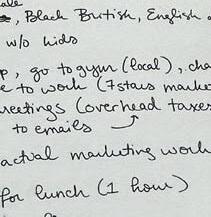 , Black British, English
w/o kids
p, go to gym (local), cha
e to work (7stars marke
eetings (overhead taxes
to emails
actual marketing work
for lunch (1 hour)